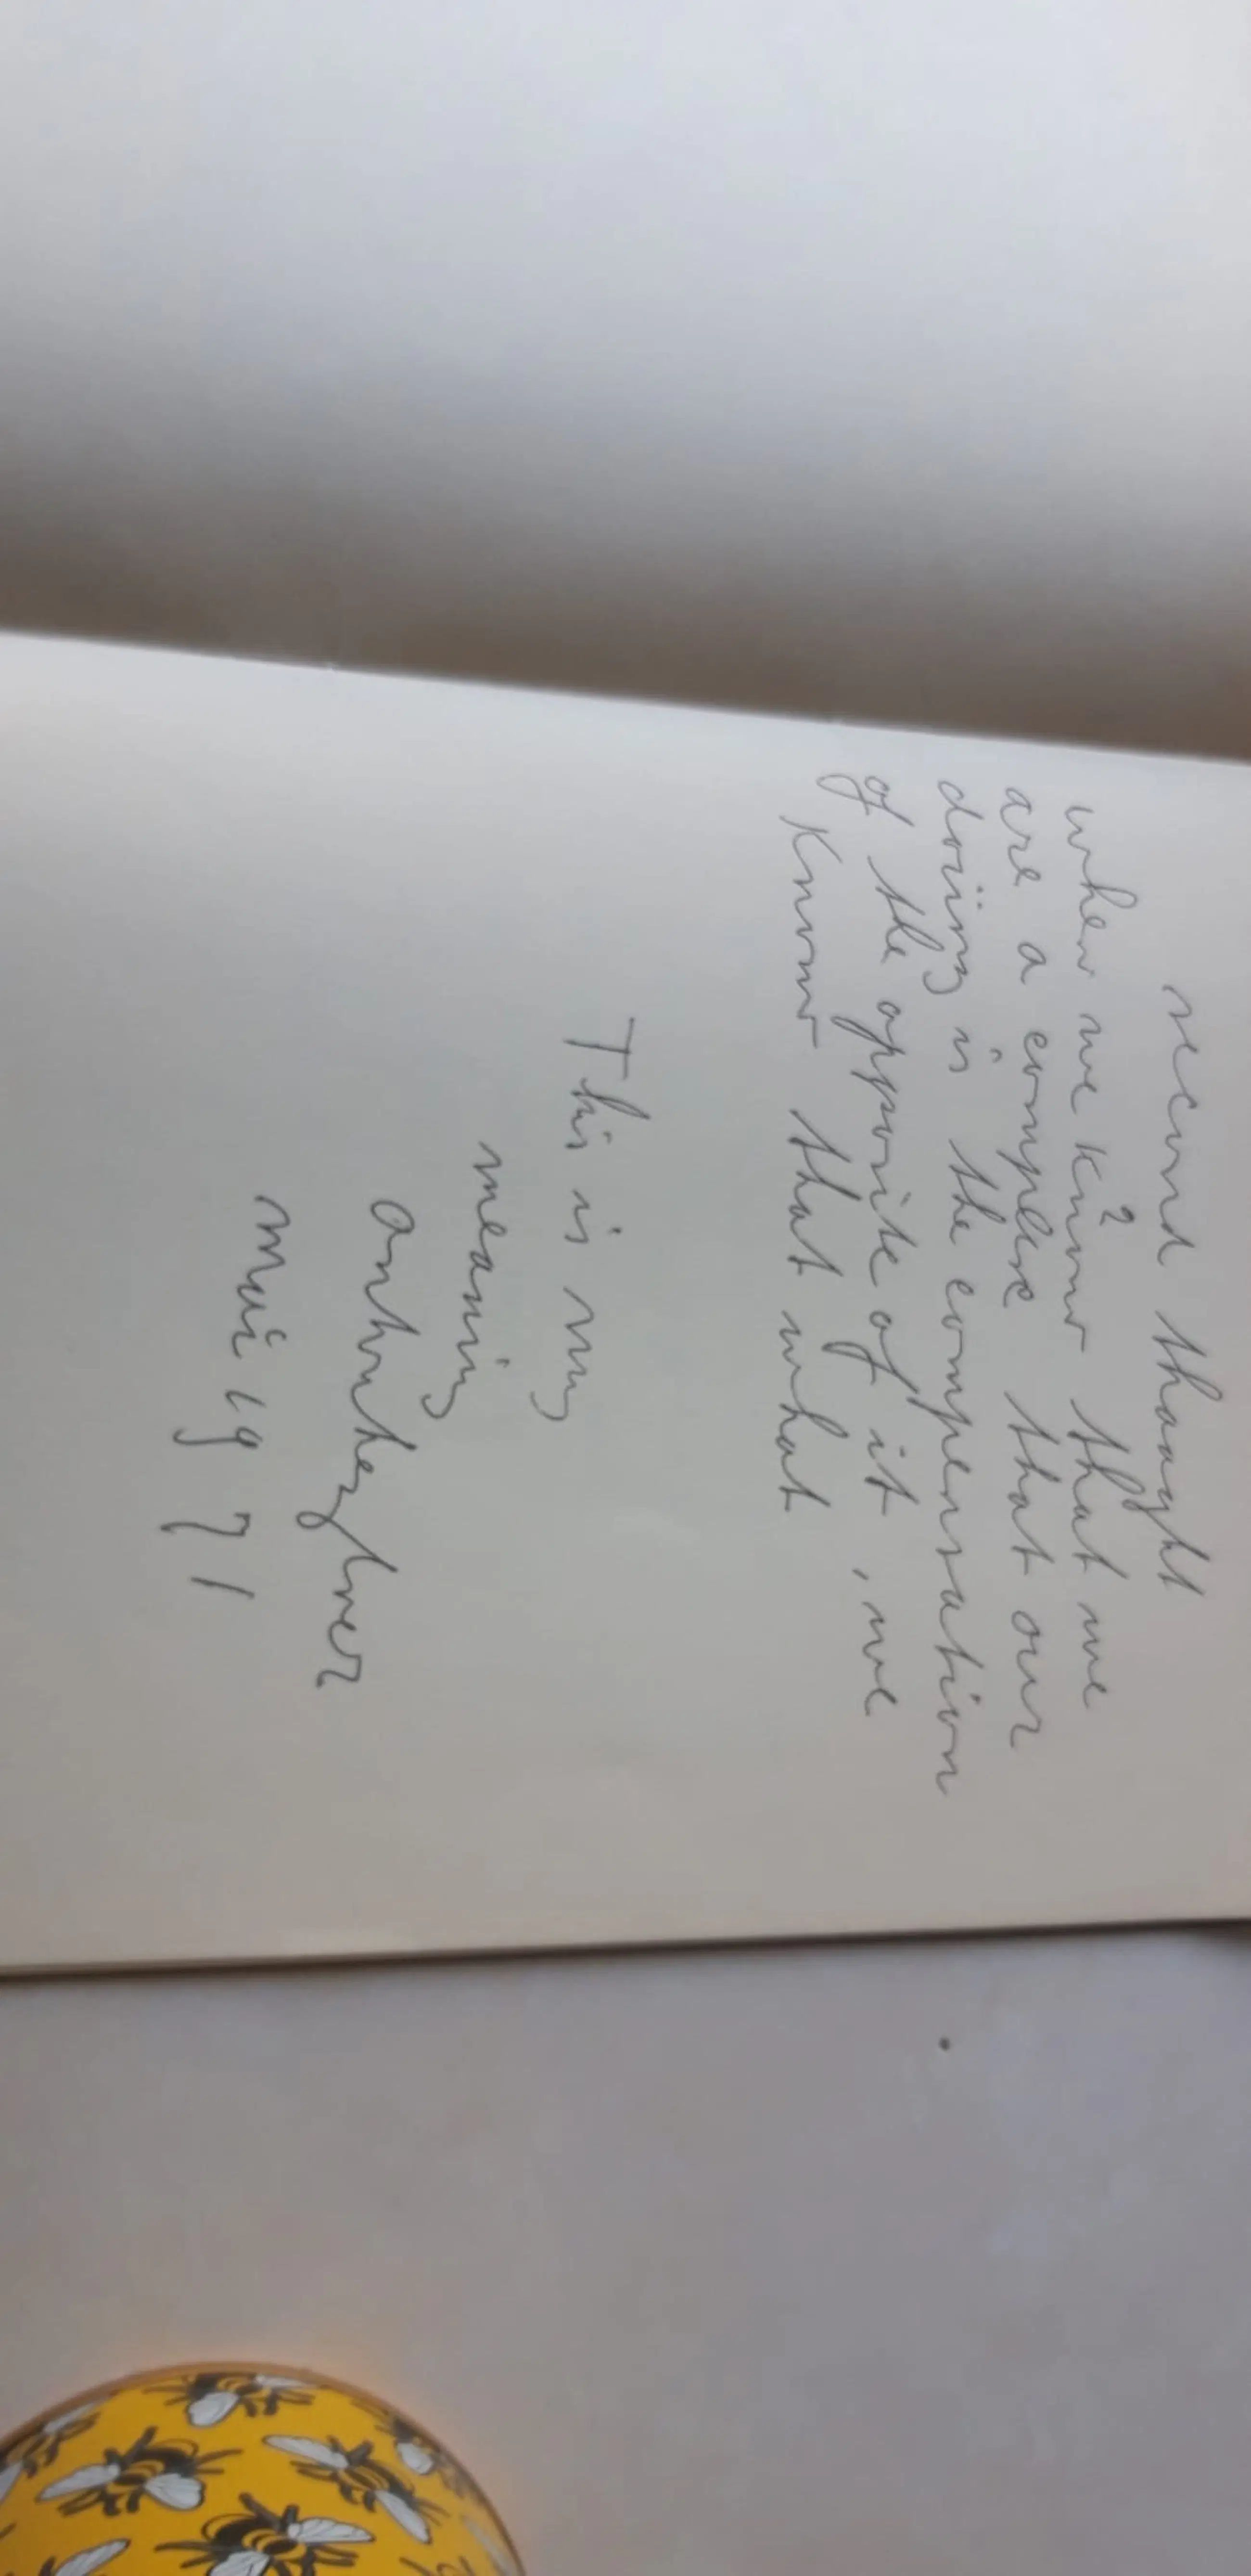 second thaught
2
when we know that we
are a complexe that our
doiing is the compensation
of the opposite of it, we
know that what
This is my
meaning
mai 1971